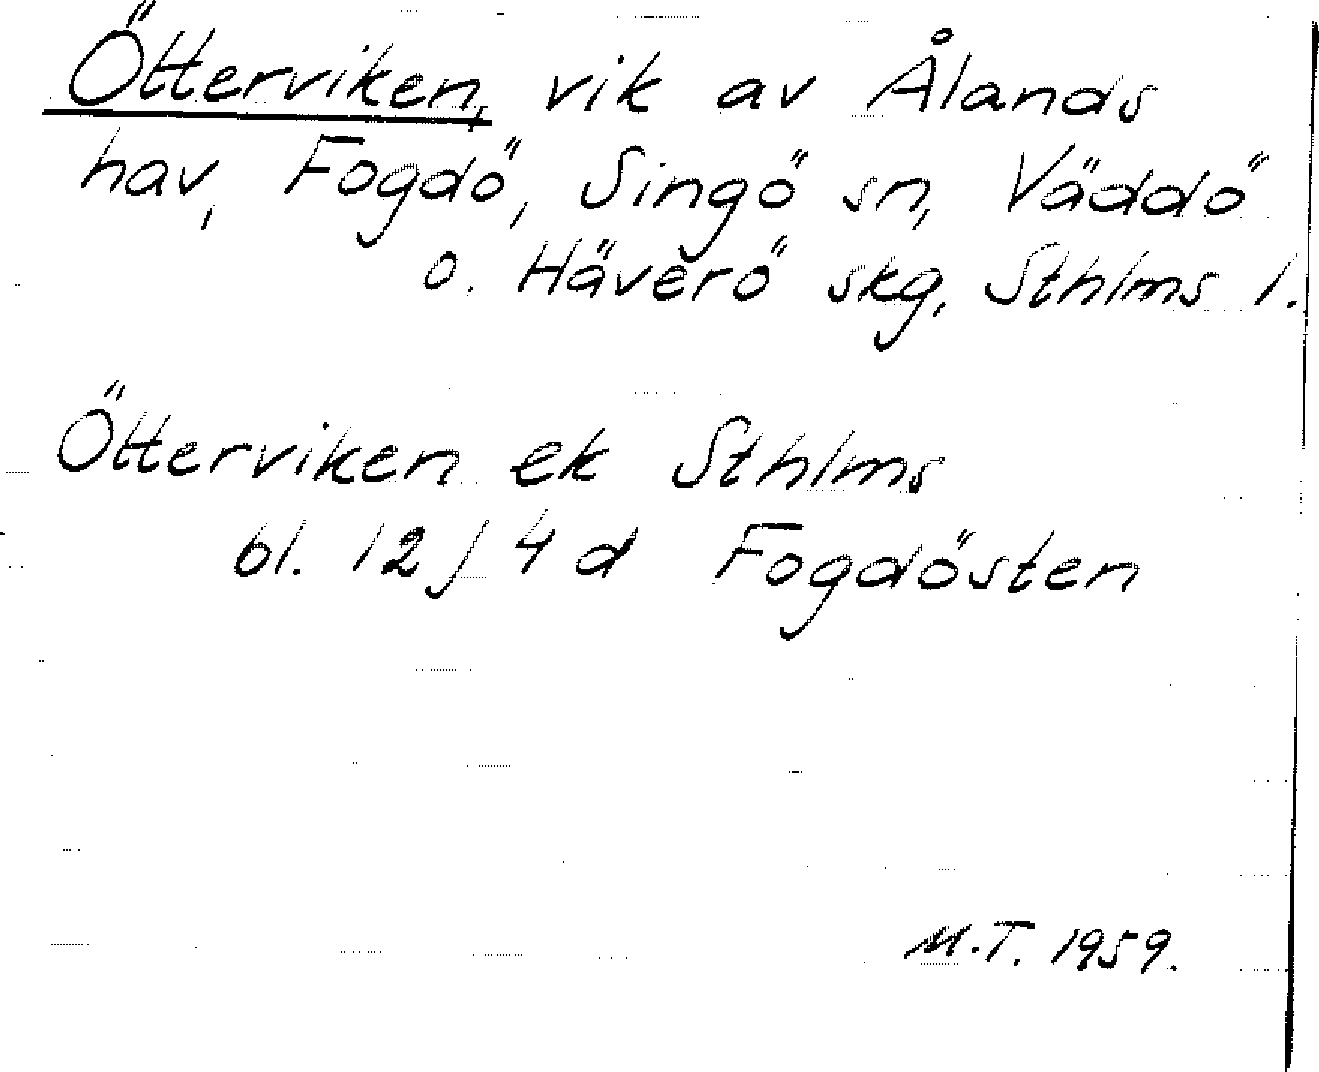 Ötterviken, vik av Ålands
hav, Fogdö, Singö sn, Väddö
o. Häverö skg, Sthlms l.
Ötterviken ek Sthlms
bl. 12 j 4 d Fogdösten
M.T. 1959.